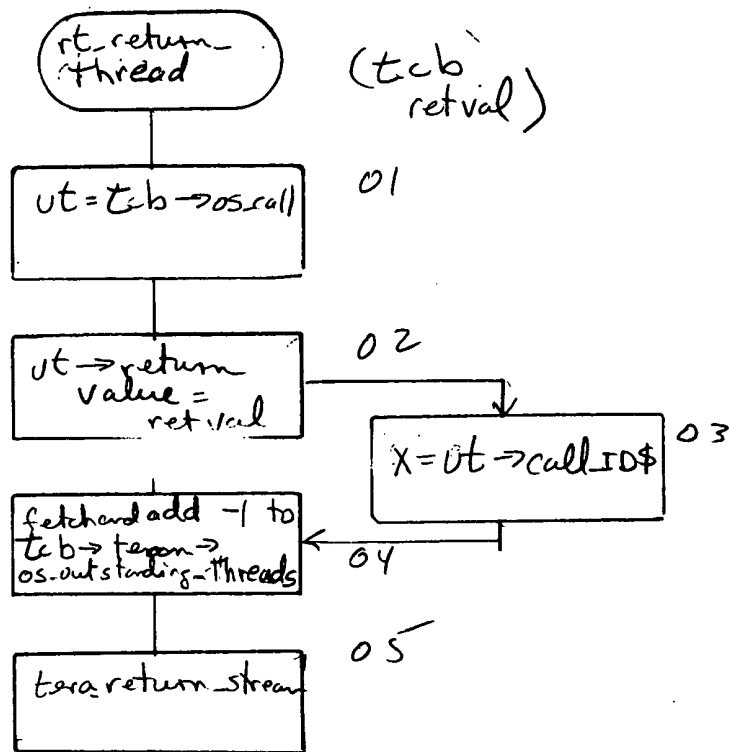 rt_return_
thread
(tcb
retval)
01
ut = tcb → os_call
02
ut → return
value =
retval
03
X = ut → call_ID$
fetchand add -1 to
tcb → team →
os_outstanding_threads
04
05
tera_return_stream